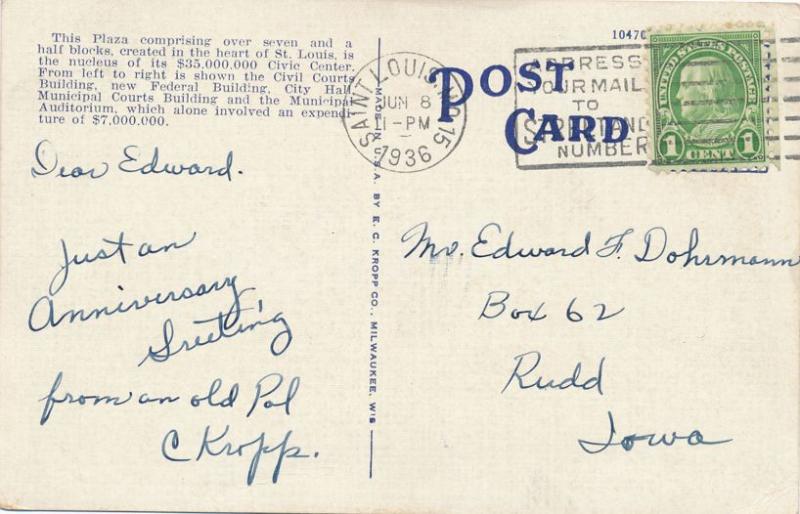 This Plaza comprising over seven and a
half blocks, created in the heart of St. Louis, is
the nucleus of its $35,000,000 Civic Center.
From left to right is shown the Civil Courts
Building, new Federal Building, City Hall,
Municipal Courts Building and the Municipal
Auditorium, which alone involved an expendi-
ture of $7,000,000.
Dear Edward.
Just an
Anniversary
Greeting
from an old Pal
C Kropp.
MADE IN U.S.A. BY E. C. KROPP CO., MILWAUKEE, WIS
SAINT LOUIS, MO. 15
JUN 8
11-PM
1936
POST
CARD
1047
ADDRESS
YOUR MAIL
TO
STREET AND
NUMBER
UNITED STATES POSTAGE
1 CENT 1
Mr. Edward F. Dohrmann
Box 62
Rudd
Iowa